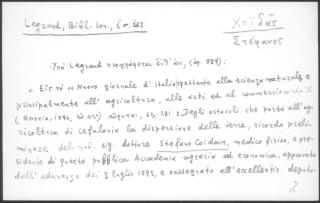 Legrand, Bibl. Ion., ἀρ. 253
Χοϊδᾶς
Στέφανος
Ὑπὸ Legrand περιγράφεται
« Εἰς τὸ « Nuovo giornale d'Italia spettante alla scienza naturale e
principalmente all'agricoltura, alle arti ed al commercio
(Venezia, 1794, σελ. 281 : Degli ostacoli che porta all'ag-
ricoltura di Cefalonia la dispersione delle terre, ricordo preli-
minare del sig. dottore Stefano Coidan, medico fisico, e pre-
sidente di questa pubblica Accademia agraria ed economica, approvato
dall'adunanza dei 3 luglio 1793, e rassegnato all'eccellentis. deputa-